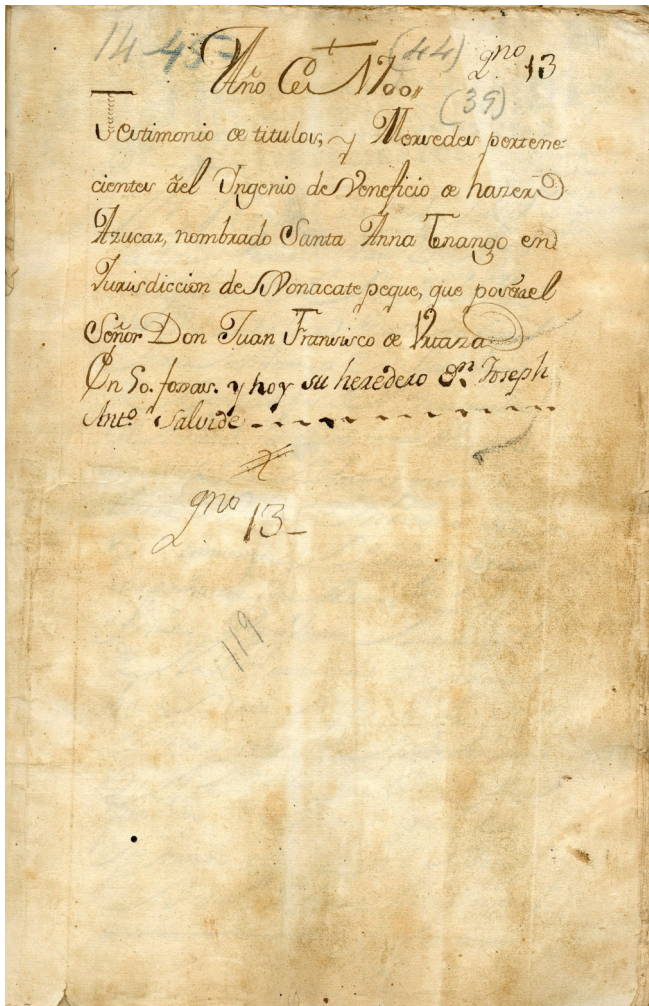 14-45
(44)
qno 13
Año de 1700
(39)
Testimonio de titulos, y Mersedes pertene-
cientes ãel Ingenio de Veneficio de hazer
Azucar, nombrado Santa Anna Tenango en
Jurisdiccion de Xonacatepeque, que posee el
Señor Don Juan Francisco de Urtaza
En 50. foxas. y hoy su heredero Dn. Joseph
Anto. Salvide
qno 13
119